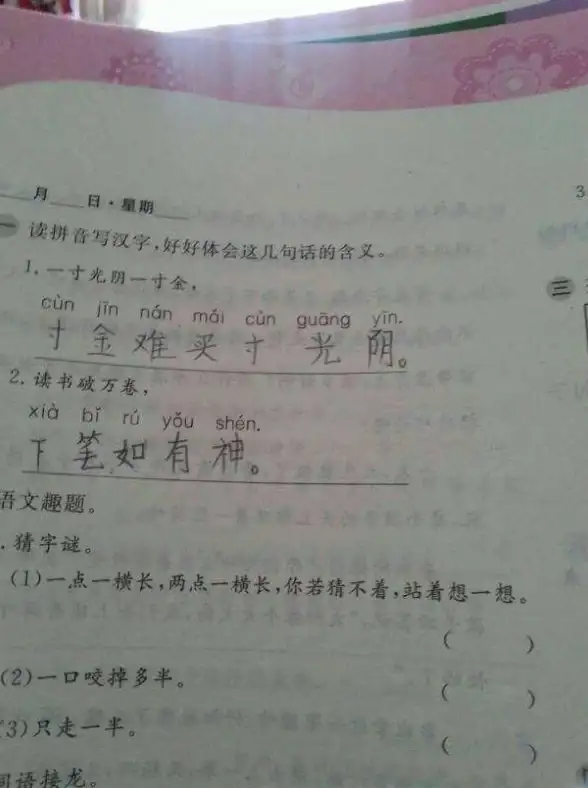 月 日·星期
一 读拼音写汉字,好好体会这几句话的含义。
1. 一寸光阴一寸金,
cùn jīn nán mǎi cùn guāng yīn.
寸金难买寸光阴。
2. 读书破万卷,
xià bǐ rú yǒu shén.
下笔如有神。
语文趣题。
.猜字谜。
(1)一点一横长,两点一横长,你若猜不着,站着想一想。
( )
(2)一口咬掉多半。 ( )
(3)只走一半。 ( )
词语接龙。
3
三